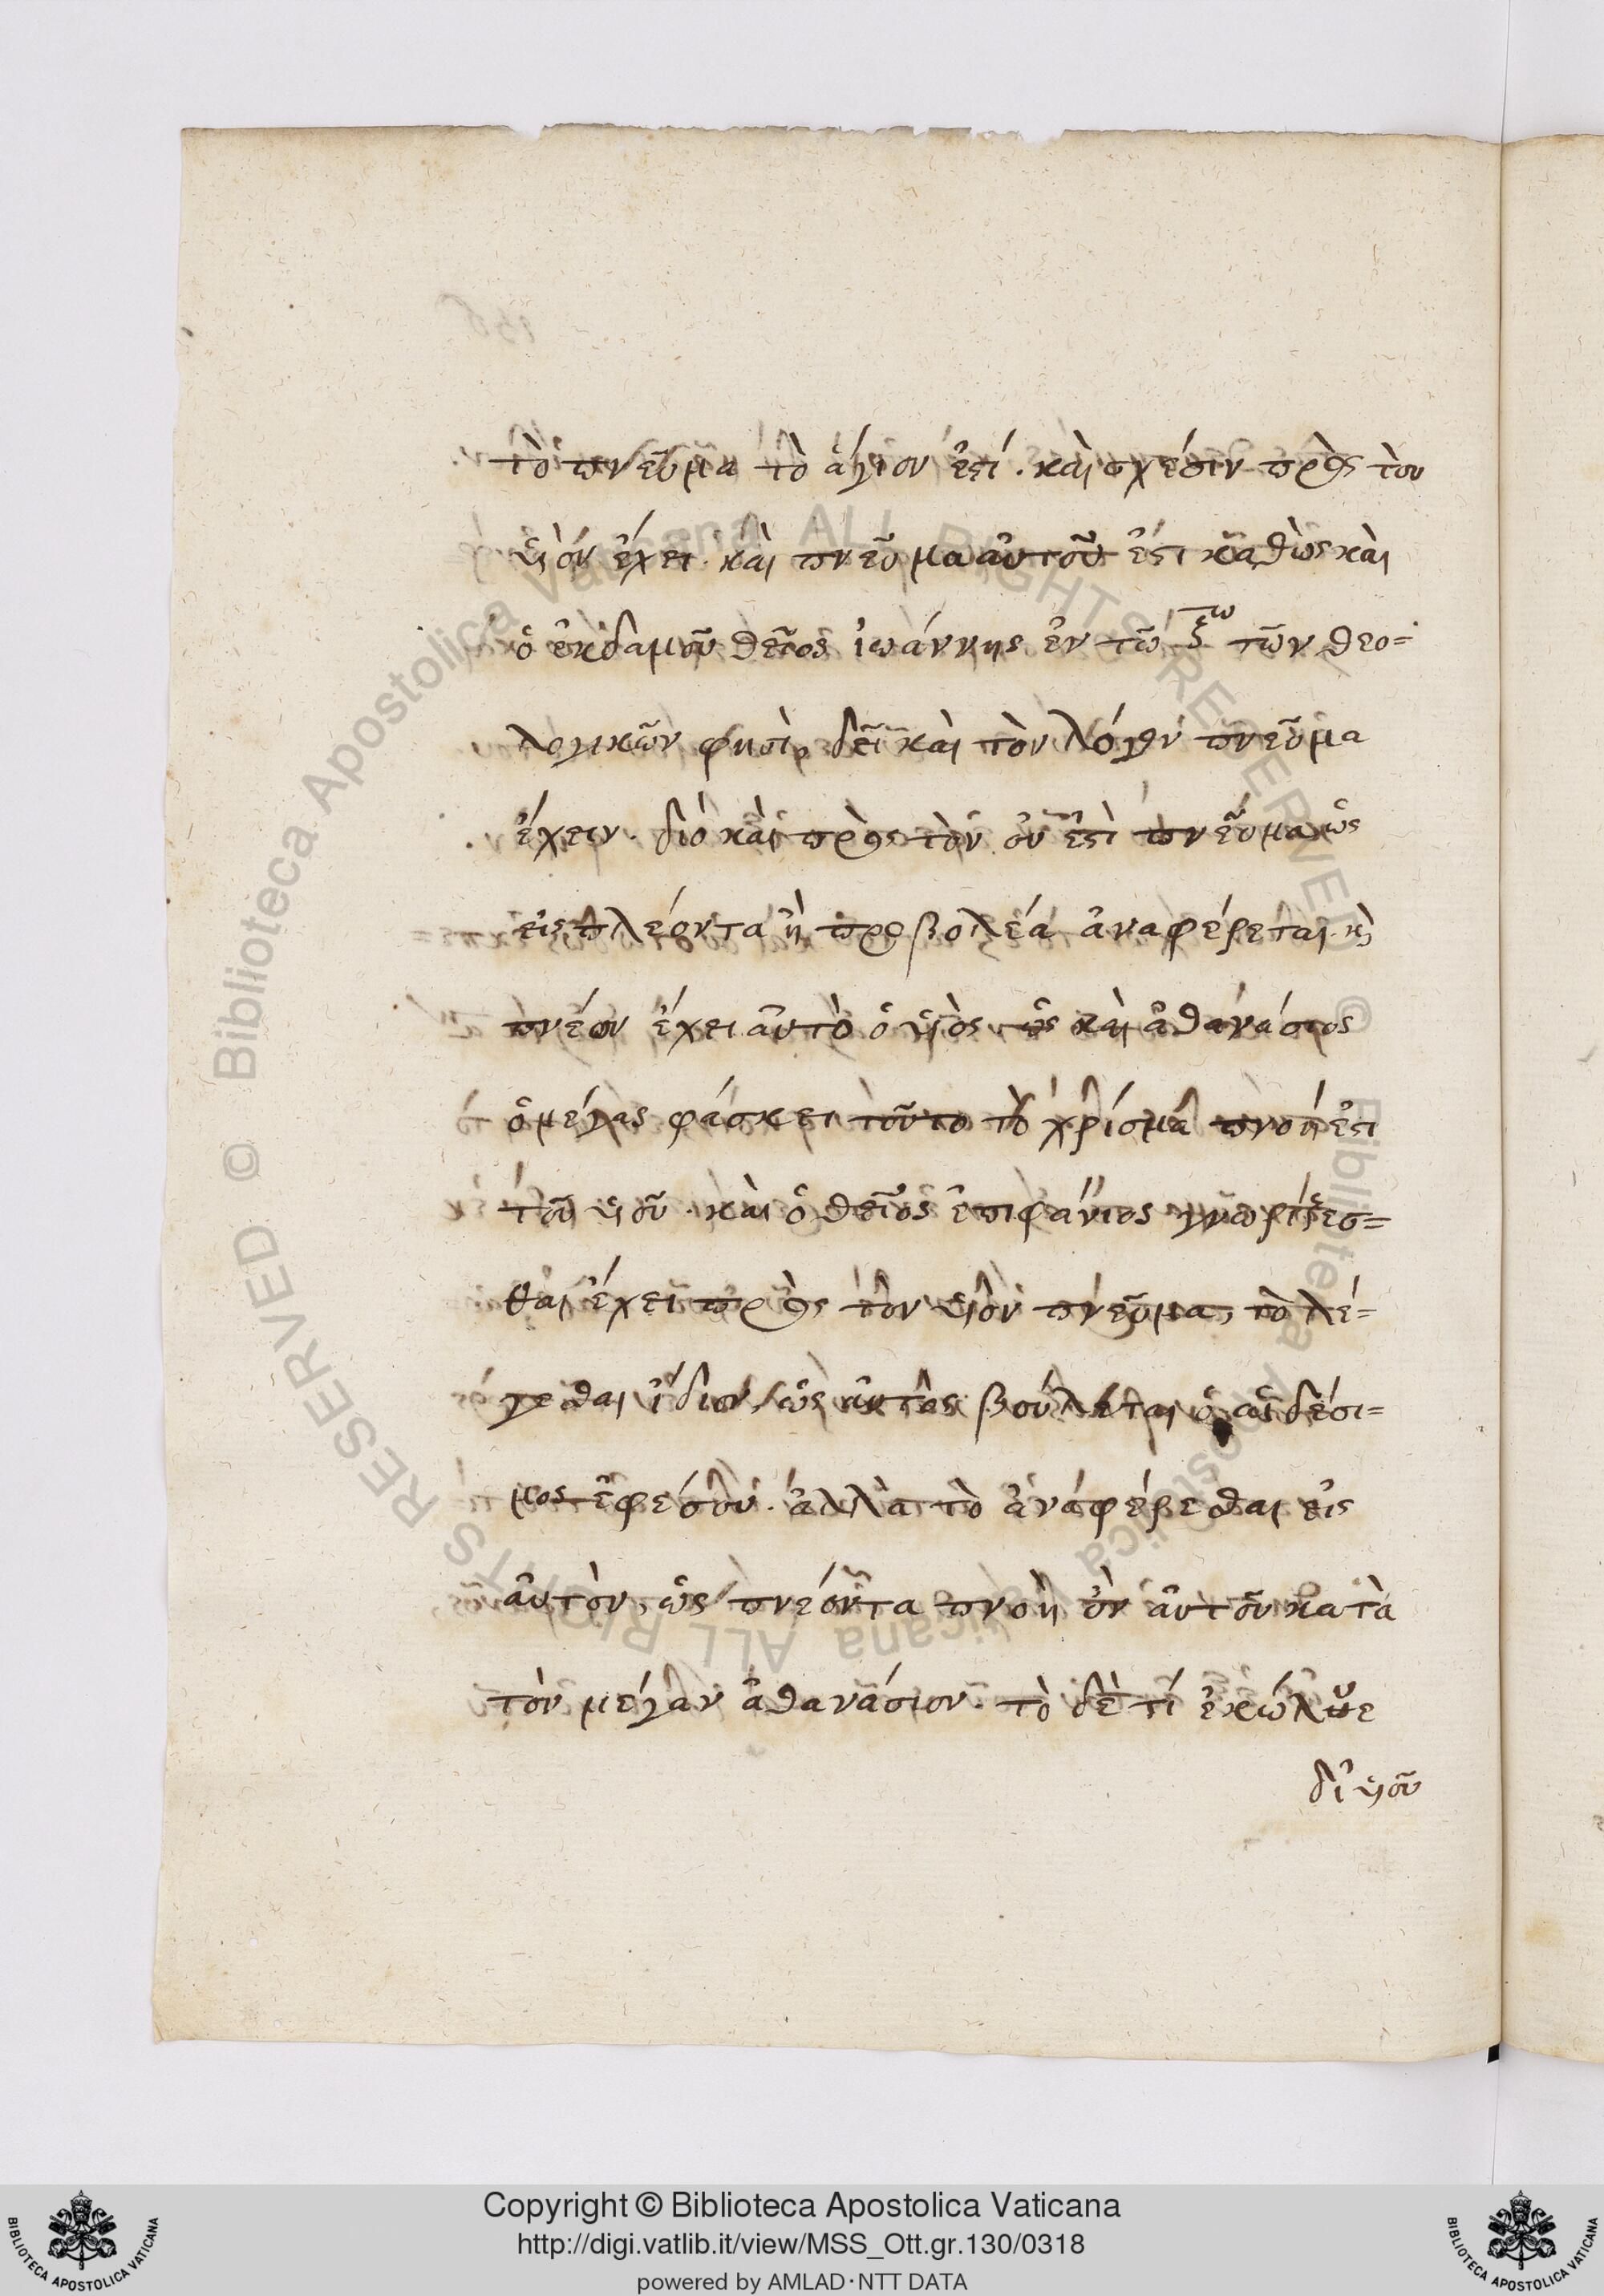 τὸ πνεῦμα τὸ ἅγιον ἐστί. καὶ σχέσιν πρὸς τὸν
υἱὸν ἔχει. καὶ πνεῦμα αὐτοῦ ἐστι καθὼς καὶ
ὁ ἐκ δαμσοῦ θεῖος ἰωάννης ἐν τῷ ξω τῶν θεο=
λογικῶν φησὶ, δεῖ καὶ τὸν λόγον πνεῦμα
ἔχειν. διὸ καὶ πρὸς τὸν οὗ ἐστὶ πνεῦμα ὡς
εἰς πλέοντα ἢ προβολέα ἀναφέρεται. κ
πνέων ἔχει αὐτὸ ὁ υἱὸς ὡς καὶ ἀθανάσιος
ὁ μέγας φάσκει τοῦτο τὸ χρίσμα πνοή ἐστι
τοῦ υἱοῦ. καὶ ὁ θεῖος ἐπιφάνιος γνωρίζεσ=
θαι ἔχει πρὸς τὸν υἱὸν πνεῦμα, τὸ λέ=
γεσθαι ἴδιον, ὡς αὐτὸς βούλεται ὁ αἰδέσι=
μος ἐφέσου. ἀλλὰ τὸ ἀναφέρεσθαι εἰς
αὐτὸν, ὡς πνέοντα πνοὴ ὂν αὐτοῦ κατὰ
τὸν μέγαν ἀθανάσιον. τὸ δὲ τί ἐκώλυε
δι' υἱοῦ
Copyright © Biblioteca Apostolica Vaticana
http://digi.vatlib.it/view/MSS_Ott.gr.130/0318
powered by AMLAD·NTT DATA
BIBLIOTECA APOSTOLICA VATICANA
BIBLIOTECA APOSTOLICA VATICANA
© Biblioteca Apostolica Vaticana ALL RIGHTS RESERVED
© Biblioteca Apostolica Vaticana ALL RIGHTS RESERVED